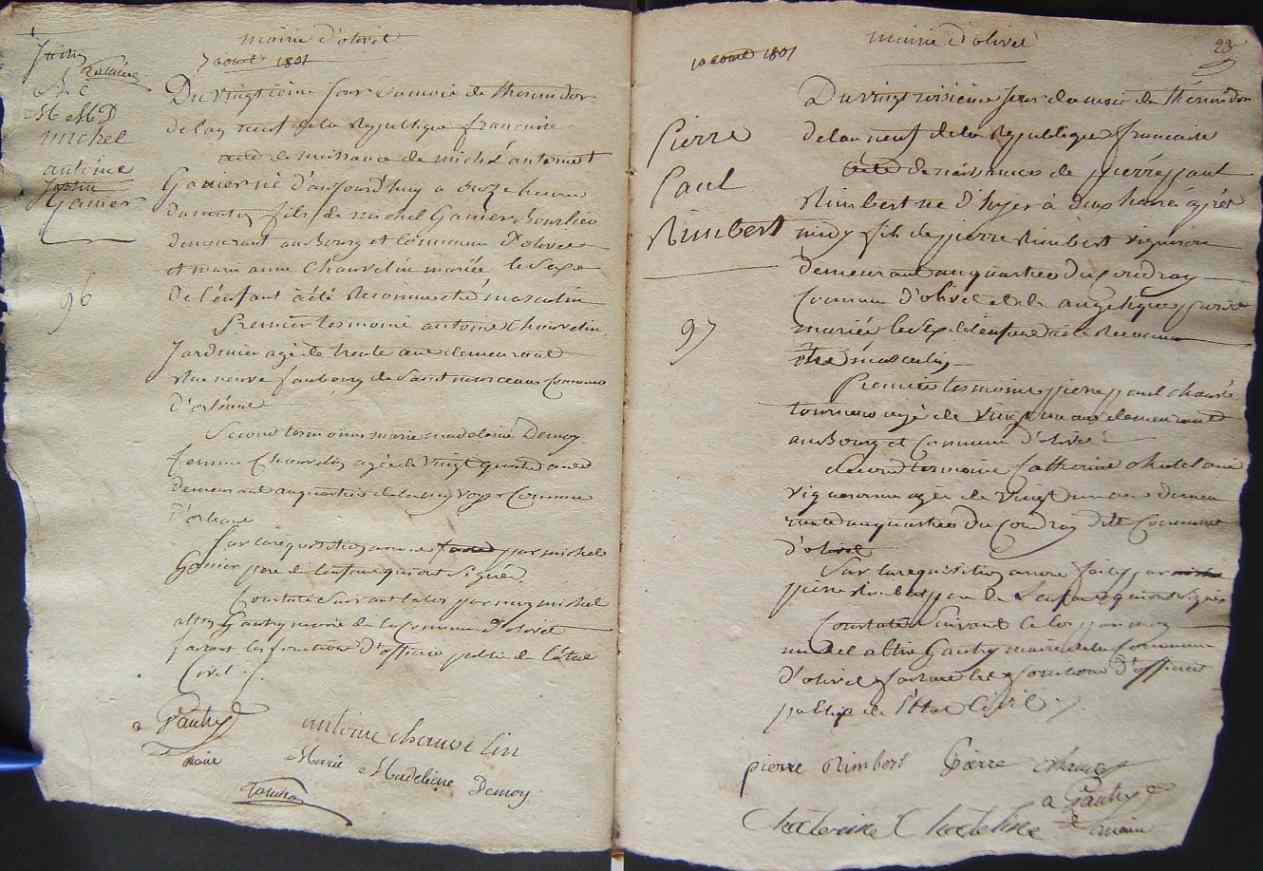 mairie d'olivet
7 aout 1801
michel
antoine
Ganier
96
Du vingtieme jour du mois de thermidor
de lan neuf de la Republique francaise
acte de naissance de michel antoine
Ganier né d'aujourd'huy a onze heure
du matin fils de michel Ganier Bourlier
demeurant au Bourg et Commune d'olivet
et marie anne Chauvelin mariée le sexe
de l'enfant a été Reconnu etre masculin
Premier temoins antoine Chauvelin
Jardinier agé de trente ans demeurant
Rue neuve faubourg de Saint marceau Commune
D'orléans
Second temoins marie madeleine Demoy
femme Chauvelin agée de vingt quatre ans
demeurant au quartier Commune
D'orleans
Sur la requisition a nous par michel
Ganier pere de l'enfant qui ont Signés
Constaté Suivant la loi par moy michel
Gautry maire de la Commune D'olivet
faisant les fonctions D'officier public de l'état
Civil
a Gautry
maire
antoine chauvelin
Marie Madeleine Demoy
mairie d'olivet
23
10 aout 1801
Pierre
Paul
Rimbert
97
Du vingt troisieme jour du mois de thermidor
de lan neuf de la Republique francaise
acte de naissance de pierre paul
Rimbert né d'hyer à deux heures aprés
midy fils de pierre Rimbert vigneron
demeurant au quartier du Coudray
Commune d'olivet et de angelique
mariée le sexe de l'enfant a été Reconnu
etre masculin
Premier temoins pierre paul
tourneur agé de vingt un ans demeurant
au Bourg et Commune d'olivet
Second temoins Catherine Chatelaine
vigneronne agée de vingt un ans demeu
rante au quartier Du Coudray dite Commune
d'olivet
Sur la requisition a nous faite par
pierre Rimbert pere de L'enfant qui ont Signés
Constaté Suivant la loi par moy
michel Gautry maire de la Commune
D'olivet faisant les fonctions D'officier
public de l'état Civil
pierre Rimbert Pierre
a Gautry
maire
Chaterine Chateline